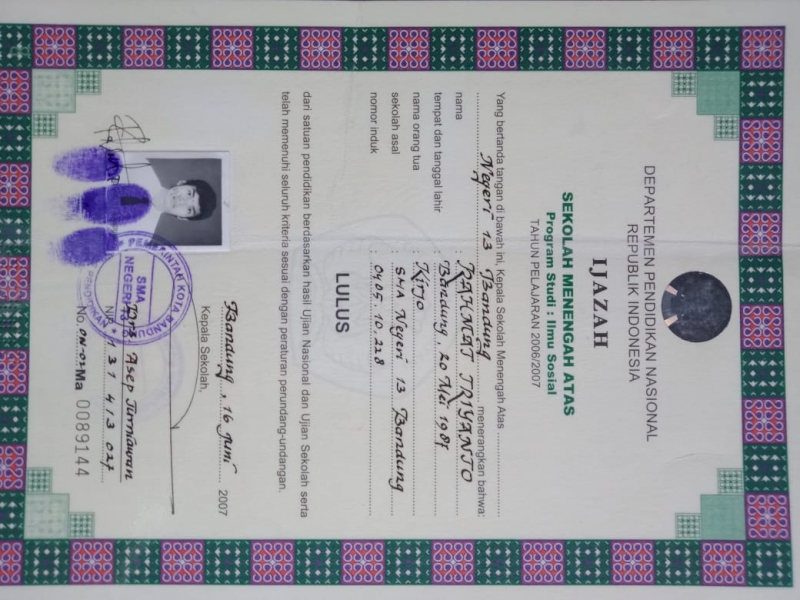 DEPARTEMEN PENDIDIKAN NASIONAL
REPUBLIK INDONESIA
IJAZAH
SEKOLAH MENENGAH ATAS
Program Studi : Ilmu Sosial
TAHUN PELAJARAN 2006/2007
Yang bertanda tangan di bawah ini, Kepala Sekolah Menengah Atas
Negeri 13 Bandung menerangkan bahwa:
nama : RAHMAT TRIYANTO
tempat dan tanggal lahir : Bandung, 20 Mei 198
nama orang tua : Kirjo
sekolah asal : SMA Negeri 13 Bandung
nomor induk : 0405.10.228
LULUS
dari satuan pendidikan berdasarkan hasil Ujian Nasional dan Ujian Sekolah serta
telah memenuhi seluruh kriteria sesuai dengan peraturan perundang-undangan.
Bandung, 16 Juni 2007
Kepala Sekolah,
PEMERINTAH KOTA BANDUNG
SMA
NEGERI
Drs. Asep Turmawan
NIP. 131 413 027
No. DN-02 Ma 0089144